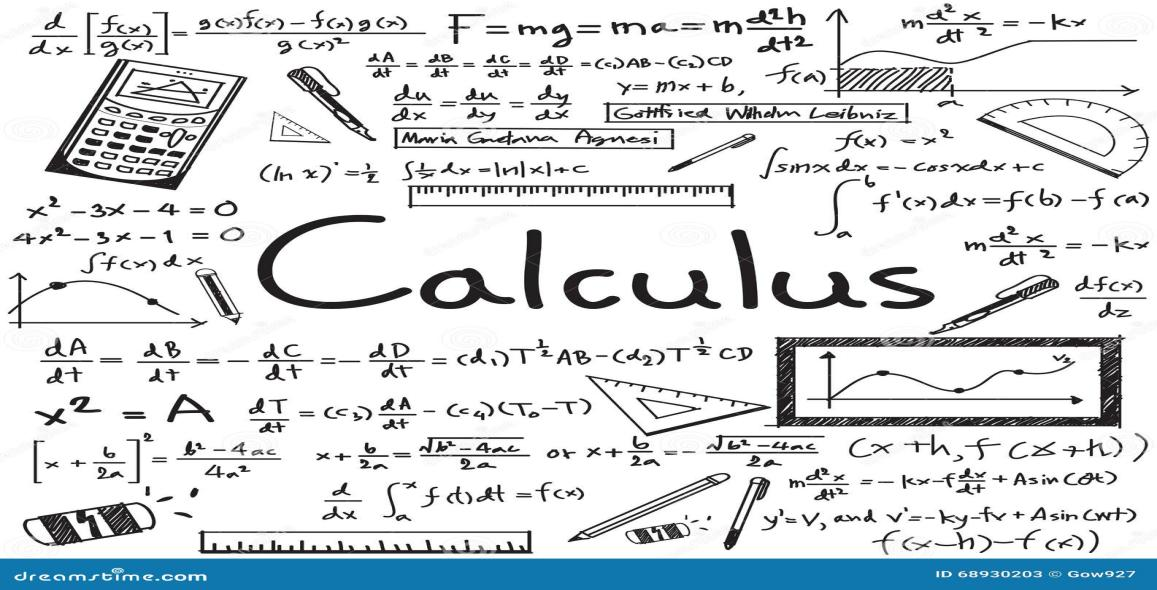 d/dx [f(x)/g(x)] = g(x)f(x) – f(x)g(x) / g(x)²
F = mg = ma = m d²h/dt2
m d²x/dt² = -kx
dA/dt = dB/dt = dC/dt = dD/dt = (c₁)AB-(c₂)CD
f(a)
a
du/dx = du/dy = dy/dx
y = mx + b,
Gottfried Wilhelm Leibniz
Maria Gaetana Agnesi
f(x) = x²
(ln x)' = 1/2
∫ 1/x dx = |n|x|+c
∫sinx dx = -cosxdx+c
∫ₐᵇ f'(x)dx = f(b) - f(a)
x² - 3x - 4 = 0
4x² - 3x - 1 = 0
∫f(x)dx
Calculus
m d²x/dt² = -kx
df(x)/dz
dA/dt = dB/dt = - dC/dt = - dD/dt = (d₁)T^½ AB-(d₂)T^½ CD
x² = A
dT/dt = (c₃) dA/dt - (c₄)(T₀-T)
[x + b/2a]² = b²-4ac / 4a²
x + b/2a = √b²-4ac / 2a or x + b/2a = - √b²-4ac / 2a
(x+h, f(x+h))
d/dx ∫ₐˣ f(t)dt = f(x)
m d²x/dt² = -kx-f dx/dt + Asin(
y'= V, and v'=-ky-fv+Asin(wt)
f(x-h)-f(x))
dreamstime.com
ID 68930203 © Gow927